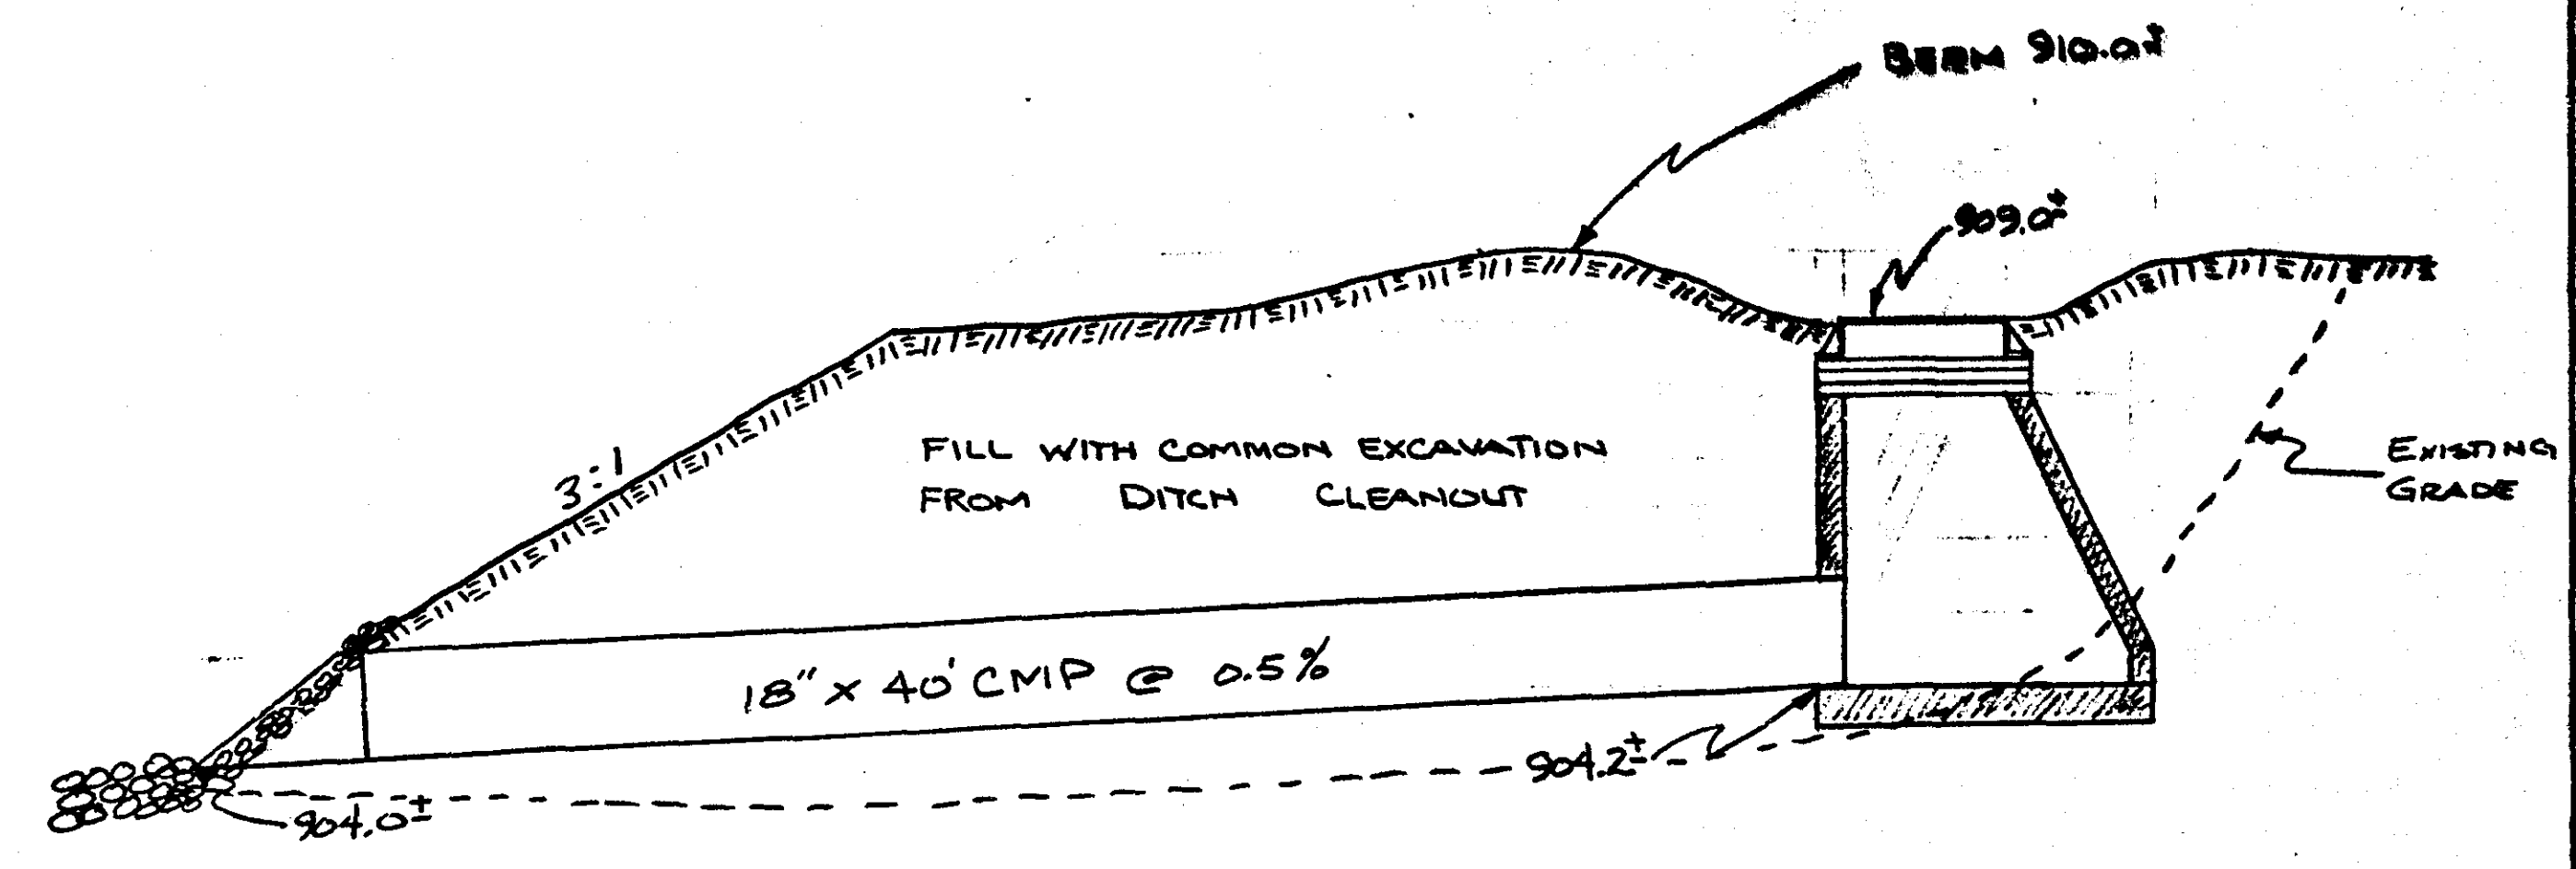 BERM 910.0±
909.0±
3:1
FILL WITH COMMON EXCAVATION
FROM DITCH CLEANOUT
EXISTING
GRADE
18" x 40' CMP @ 0.5%
904.2±
904.0±